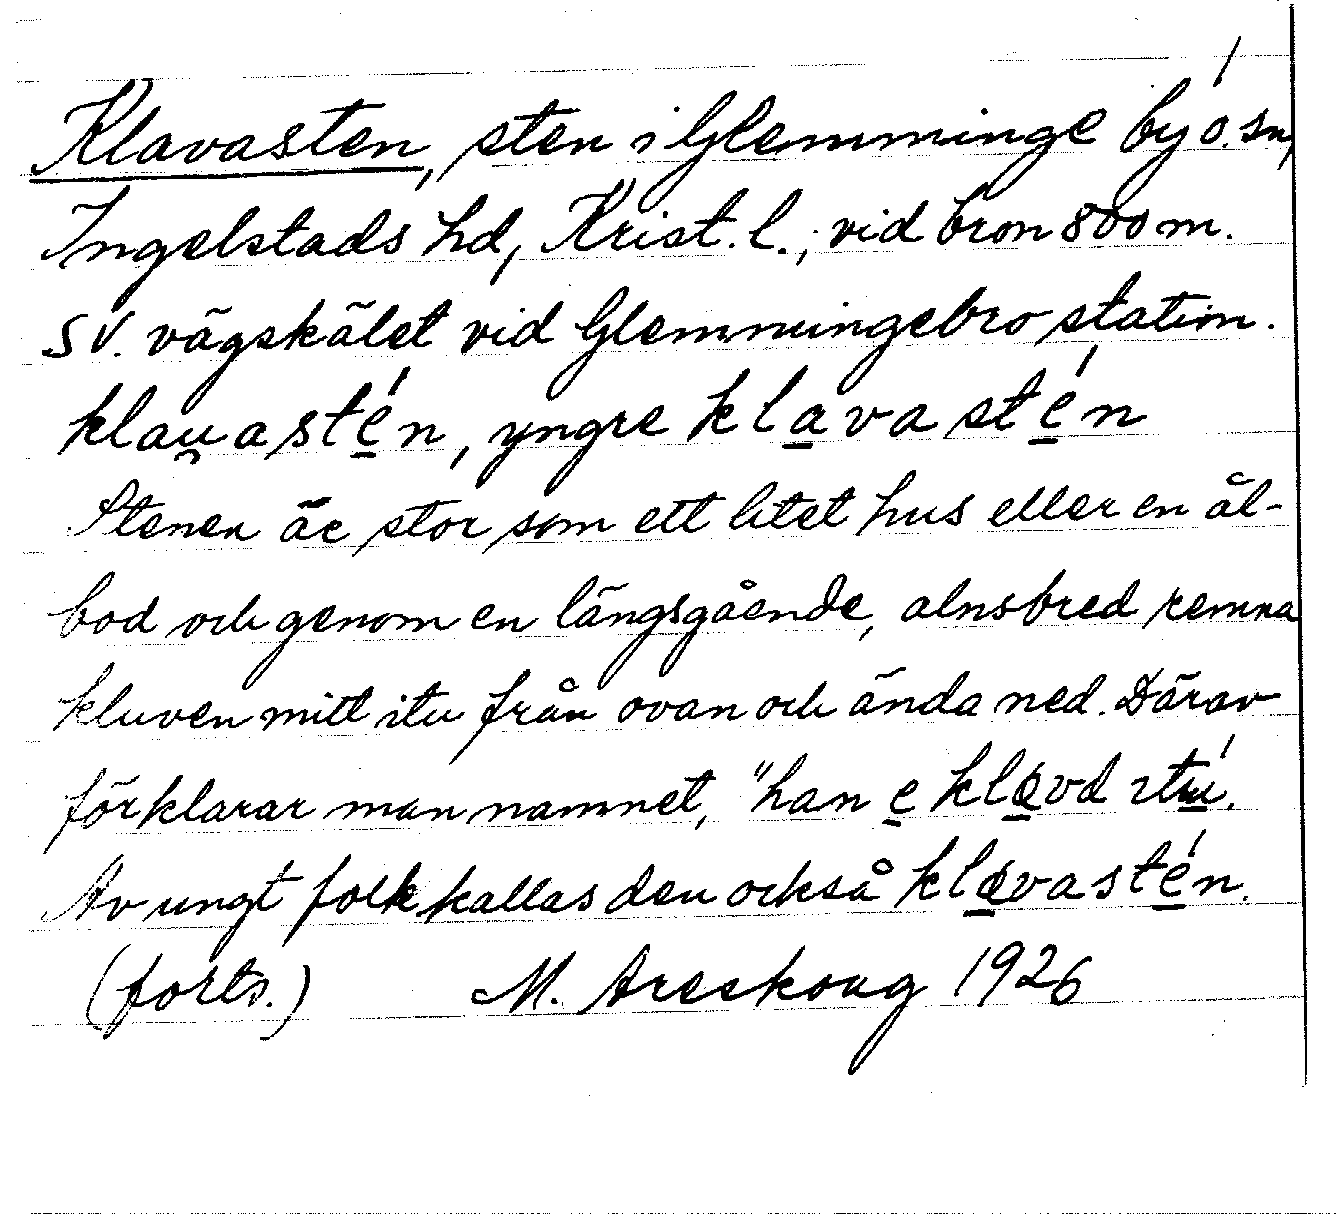 Klavasten, sten i Glemminge by o. sn,
Ingelstads hd, Krist. l.; vid bron 800 m.
SV. vägskälet vid Glemmingebro station.
klau̯astén, yngre klavastén
Stenen är stor som ett litet hus eller en ål-
bod och genom en längsgående, alnsbred remna
kluven mitt itu från ovan och ända ned. Därav
förklarar man namnet, "han e kløvd itú.
Av ungt folk kallas den också kløvastén.
(forts.) M. Areskoug 1926